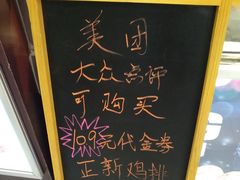 美团
大众点评
可购买
109元代金券
正新鸡排